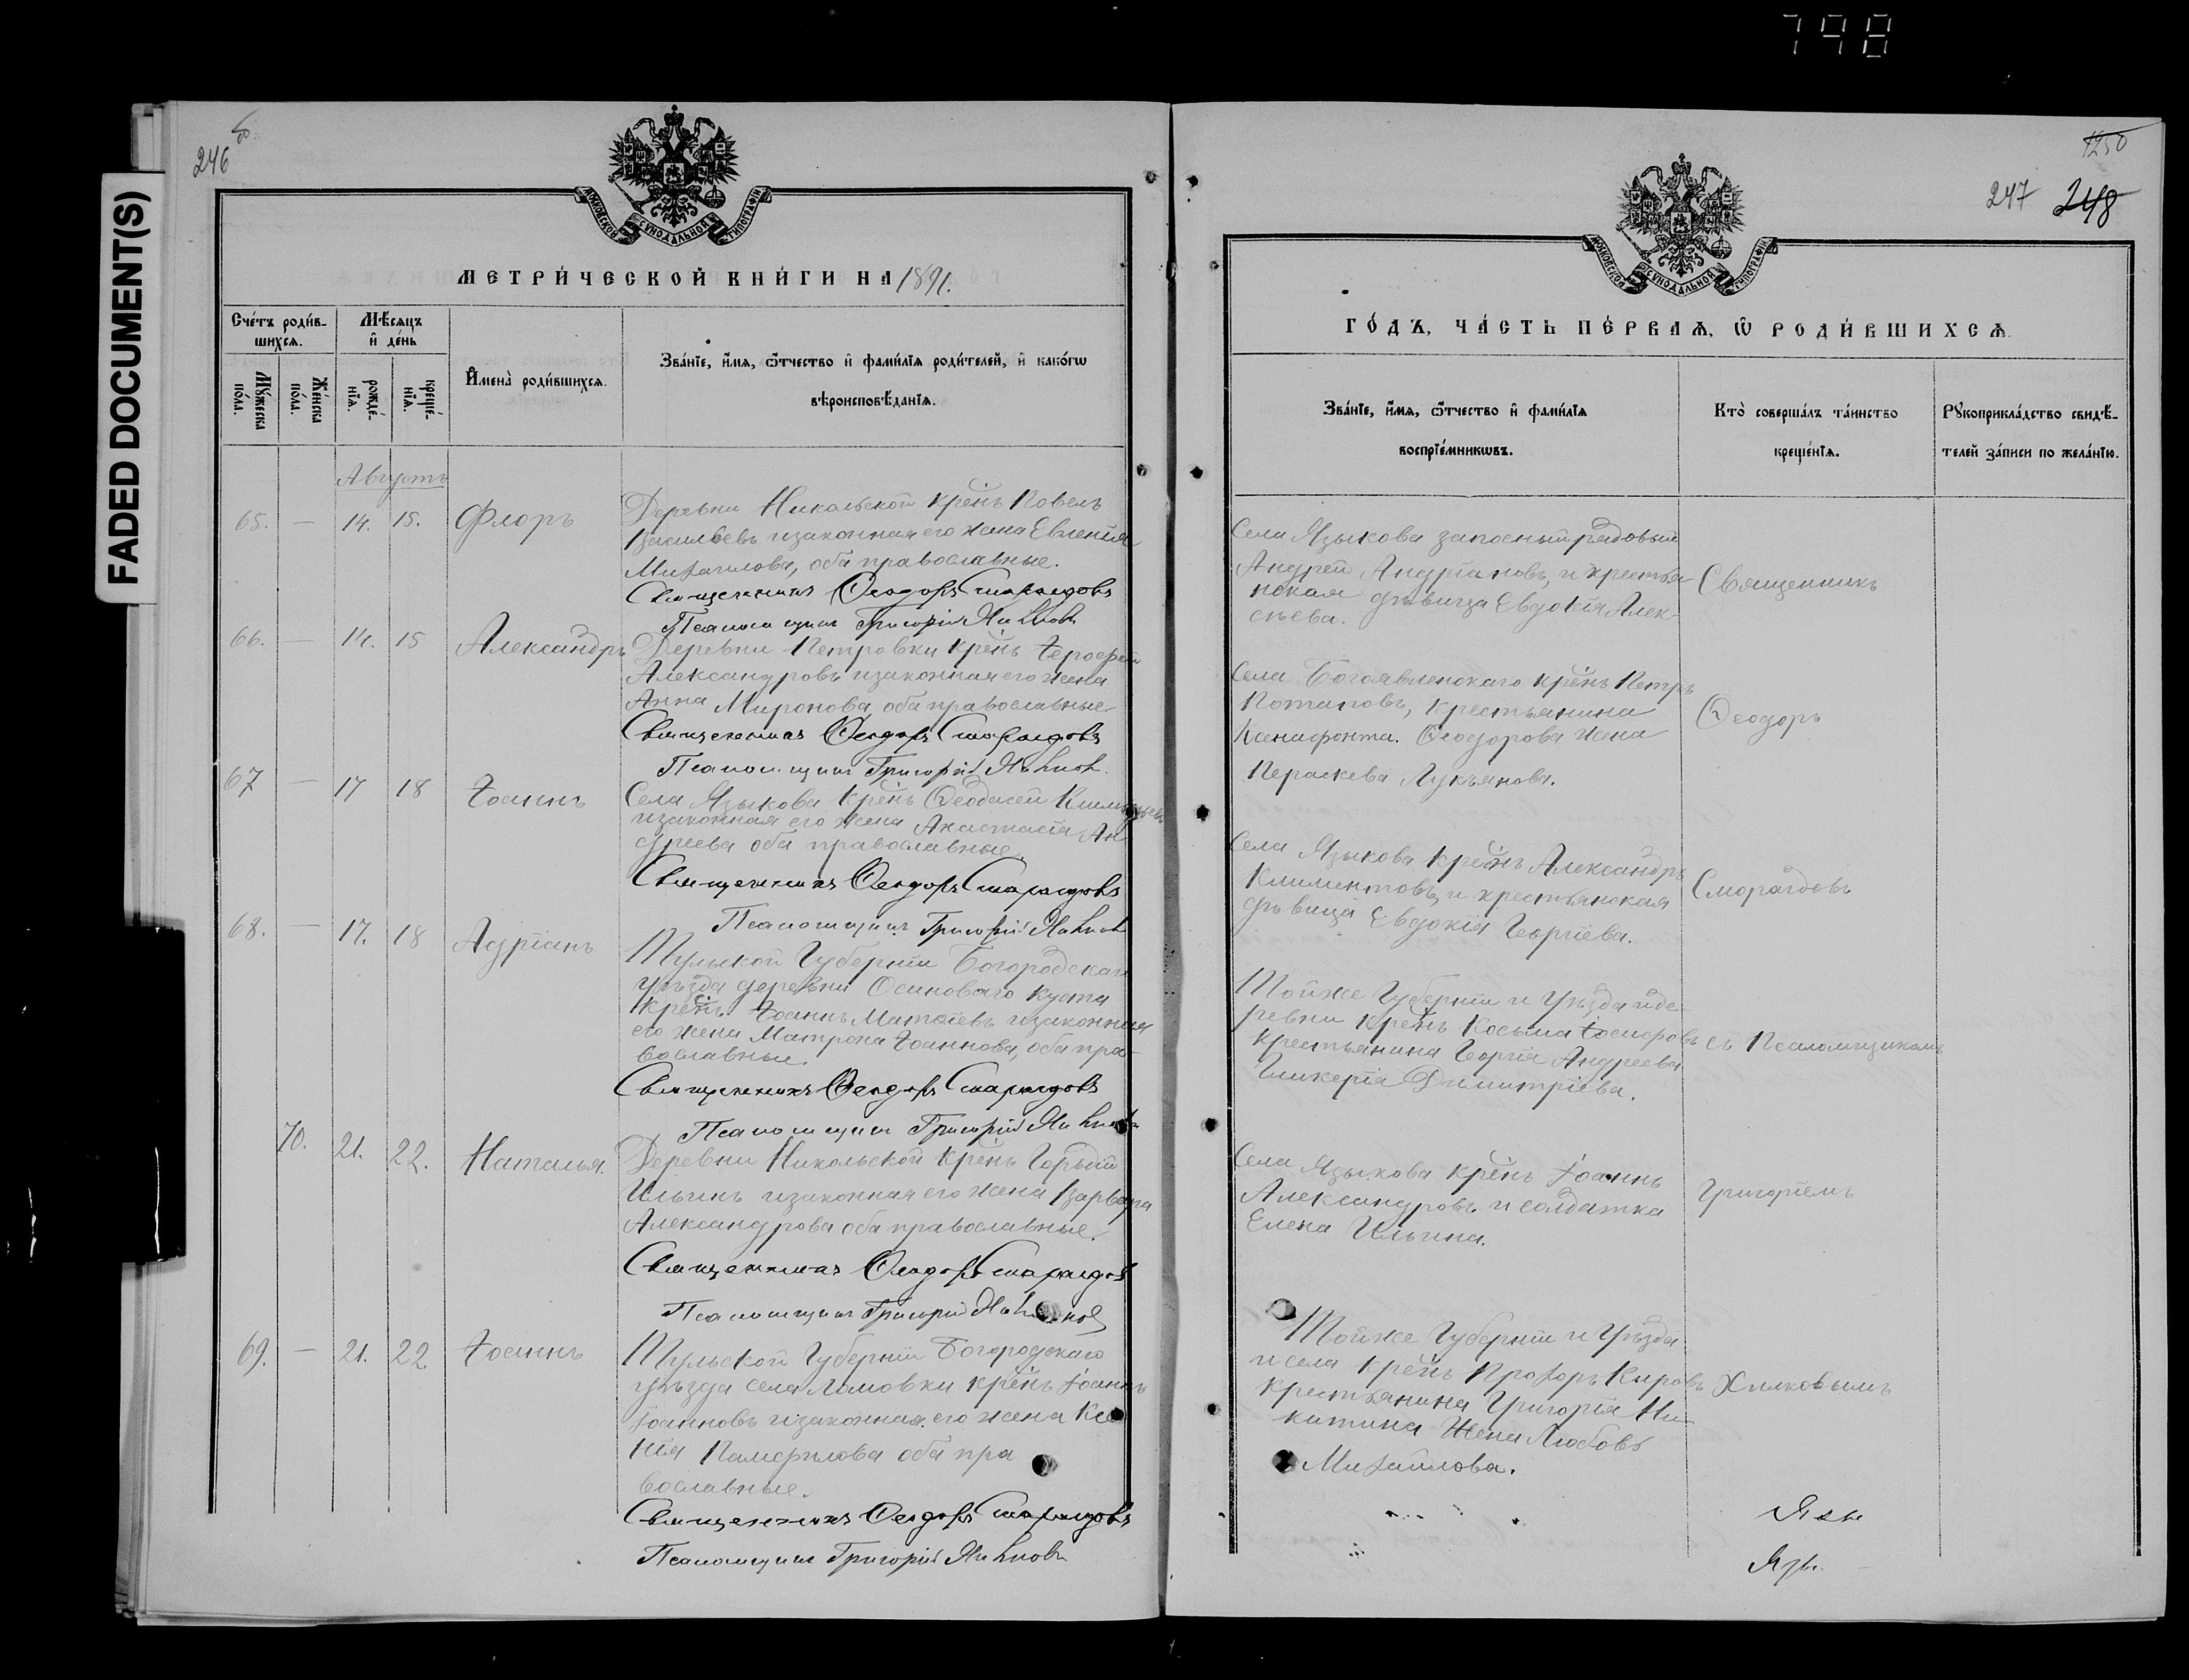 798
FADED DOCUMENT(S)
246 об.
МОСКОВСКОЙ СѴНОДАЛЬНОЙ ТИПОГРАФІИ
МЕТРИ́ЧЕСКОЙ КНИ́ГИ НА 1891.
Сче́тъ роди́в-
шихсѧ.
Мѣ́сѧцъ
и҆ де́нь
Мꙋ́жеска
по́ла.
Же́нска
по́ла.
рожде́-
нїѧ.
креще́-
нїѧ.
И҆мена̀ роди́вшихсѧ.
Зва́нїе, и҆́мѧ, ѻ҆́тчество и҆ фами́лїѧ роди́телей, и҆ како́гѡ
вѣроисповѣ́данїѧ.
Августъ
65. — 14. 15. Флоръ
Деревни Никольской крен̃ъ Повелъ
Васильевъ изаконная его жена Евгенія
Михаилова, оба православные.
Священникъ Ѳеодоръ Смарагдовъ
Псаломщикъ Григорій
66. — 14. 15 Александръ
Деревни Петровки крен̃ъ Іерофей
Александровъ изаконная его жена
Анна Миронова, оба православные
Священникъ Ѳеодоръ Смарагдовъ
Псаломщикъ Григорій
67 — 17 18 Іоаннъ
Села Языкова крен̃ъ Ѳеодосей
изаконная его жена Анастасія Ан-
дреева оба православные.
Священникъ Ѳеодоръ Смарагдовъ
Псаломщикъ Григорій
68. — 17. 18 Адріанъ
Тульской Губерніи Богородскаго
Уѣзда деревни Осиноваго куста
крен̃ъ Іоаннъ Матѳіевъ изаконная
его жена Матрона Іоаннова, оба пра-
вославные
Священникъ Ѳеодоръ Смарагдовъ
Псаломщикъ Григорій
70. 21. 22. Наталья.
Деревни Никольской крен̃ъ Гордій
Ильинъ изаконная его жена Варвара
Александрова оба православные.
Священникъ Ѳеодоръ Смарагдовъ
Псаломщикъ Григорій
69. — 21. 22 Іоаннъ
Тульской Губерніи Богородскаго
уѣзда села Ломовки крен̃ъ Іоаннъ
Іоанновъ изаконная его жена Ксе
нія Памфилова оба пра
вославные.
Священникъ Ѳеодоръ Смарагдовъ
Псаломщикъ Григорій
1250
247 248
МОСКОВСКОЙ СѴНОДАЛЬНОЙ ТИПОГРАФІИ
ГО́ДЪ, ЧА́СТЬ ПЕ́РВАѦ, Ѡ҆ РОДИ́ВШИХСѦ.
Зва́нїе, и҆́мѧ, ѻ҆́тчество и҆ фами́лїѧ
воспрїе́мникѡвъ.
Кто̀ соверша́лъ та́инство
креще́нїѧ.
Рꙋкоприкла́дство свидѣ́-
телей за́писи по жела́нїю.
Села Языкова запосный рядовый
Андрей Андріановъ, и крестья-
нская дѣвица Евдокія Алек-
сѣева.
Священникъ
Села Богоявленскаго крен̃ъ Петръ
Потаповъ, крестьянина
Ксенафонта. Ѳеодорова жена
Пераскева Лукьянова.
Ѳеодоръ
Села Языкова крен̃ъ Александръ
Климентовъ, и крестьянская
дѣвица Евдокія Георгіева.
Смарагдовъ
Тойже Губерніи и Уѣзда иде
ревни крен̃ъ Косьма Іосифовъ
крестьянина Георгія Андреева
Гликерія Димитріева.
съ Псаломщикомъ
Села Языкова крен̃ъ Іоаннъ
Александровъ и солдатка
Елена Ильина.
Григоріемъ
Тойже Губерніи и Уѣзда
и села крен̃ъ Прохоръ Кировъ
крестьянина Григорія Ни-
китина Жена Любовь
Михаилова.
Хилковымъ